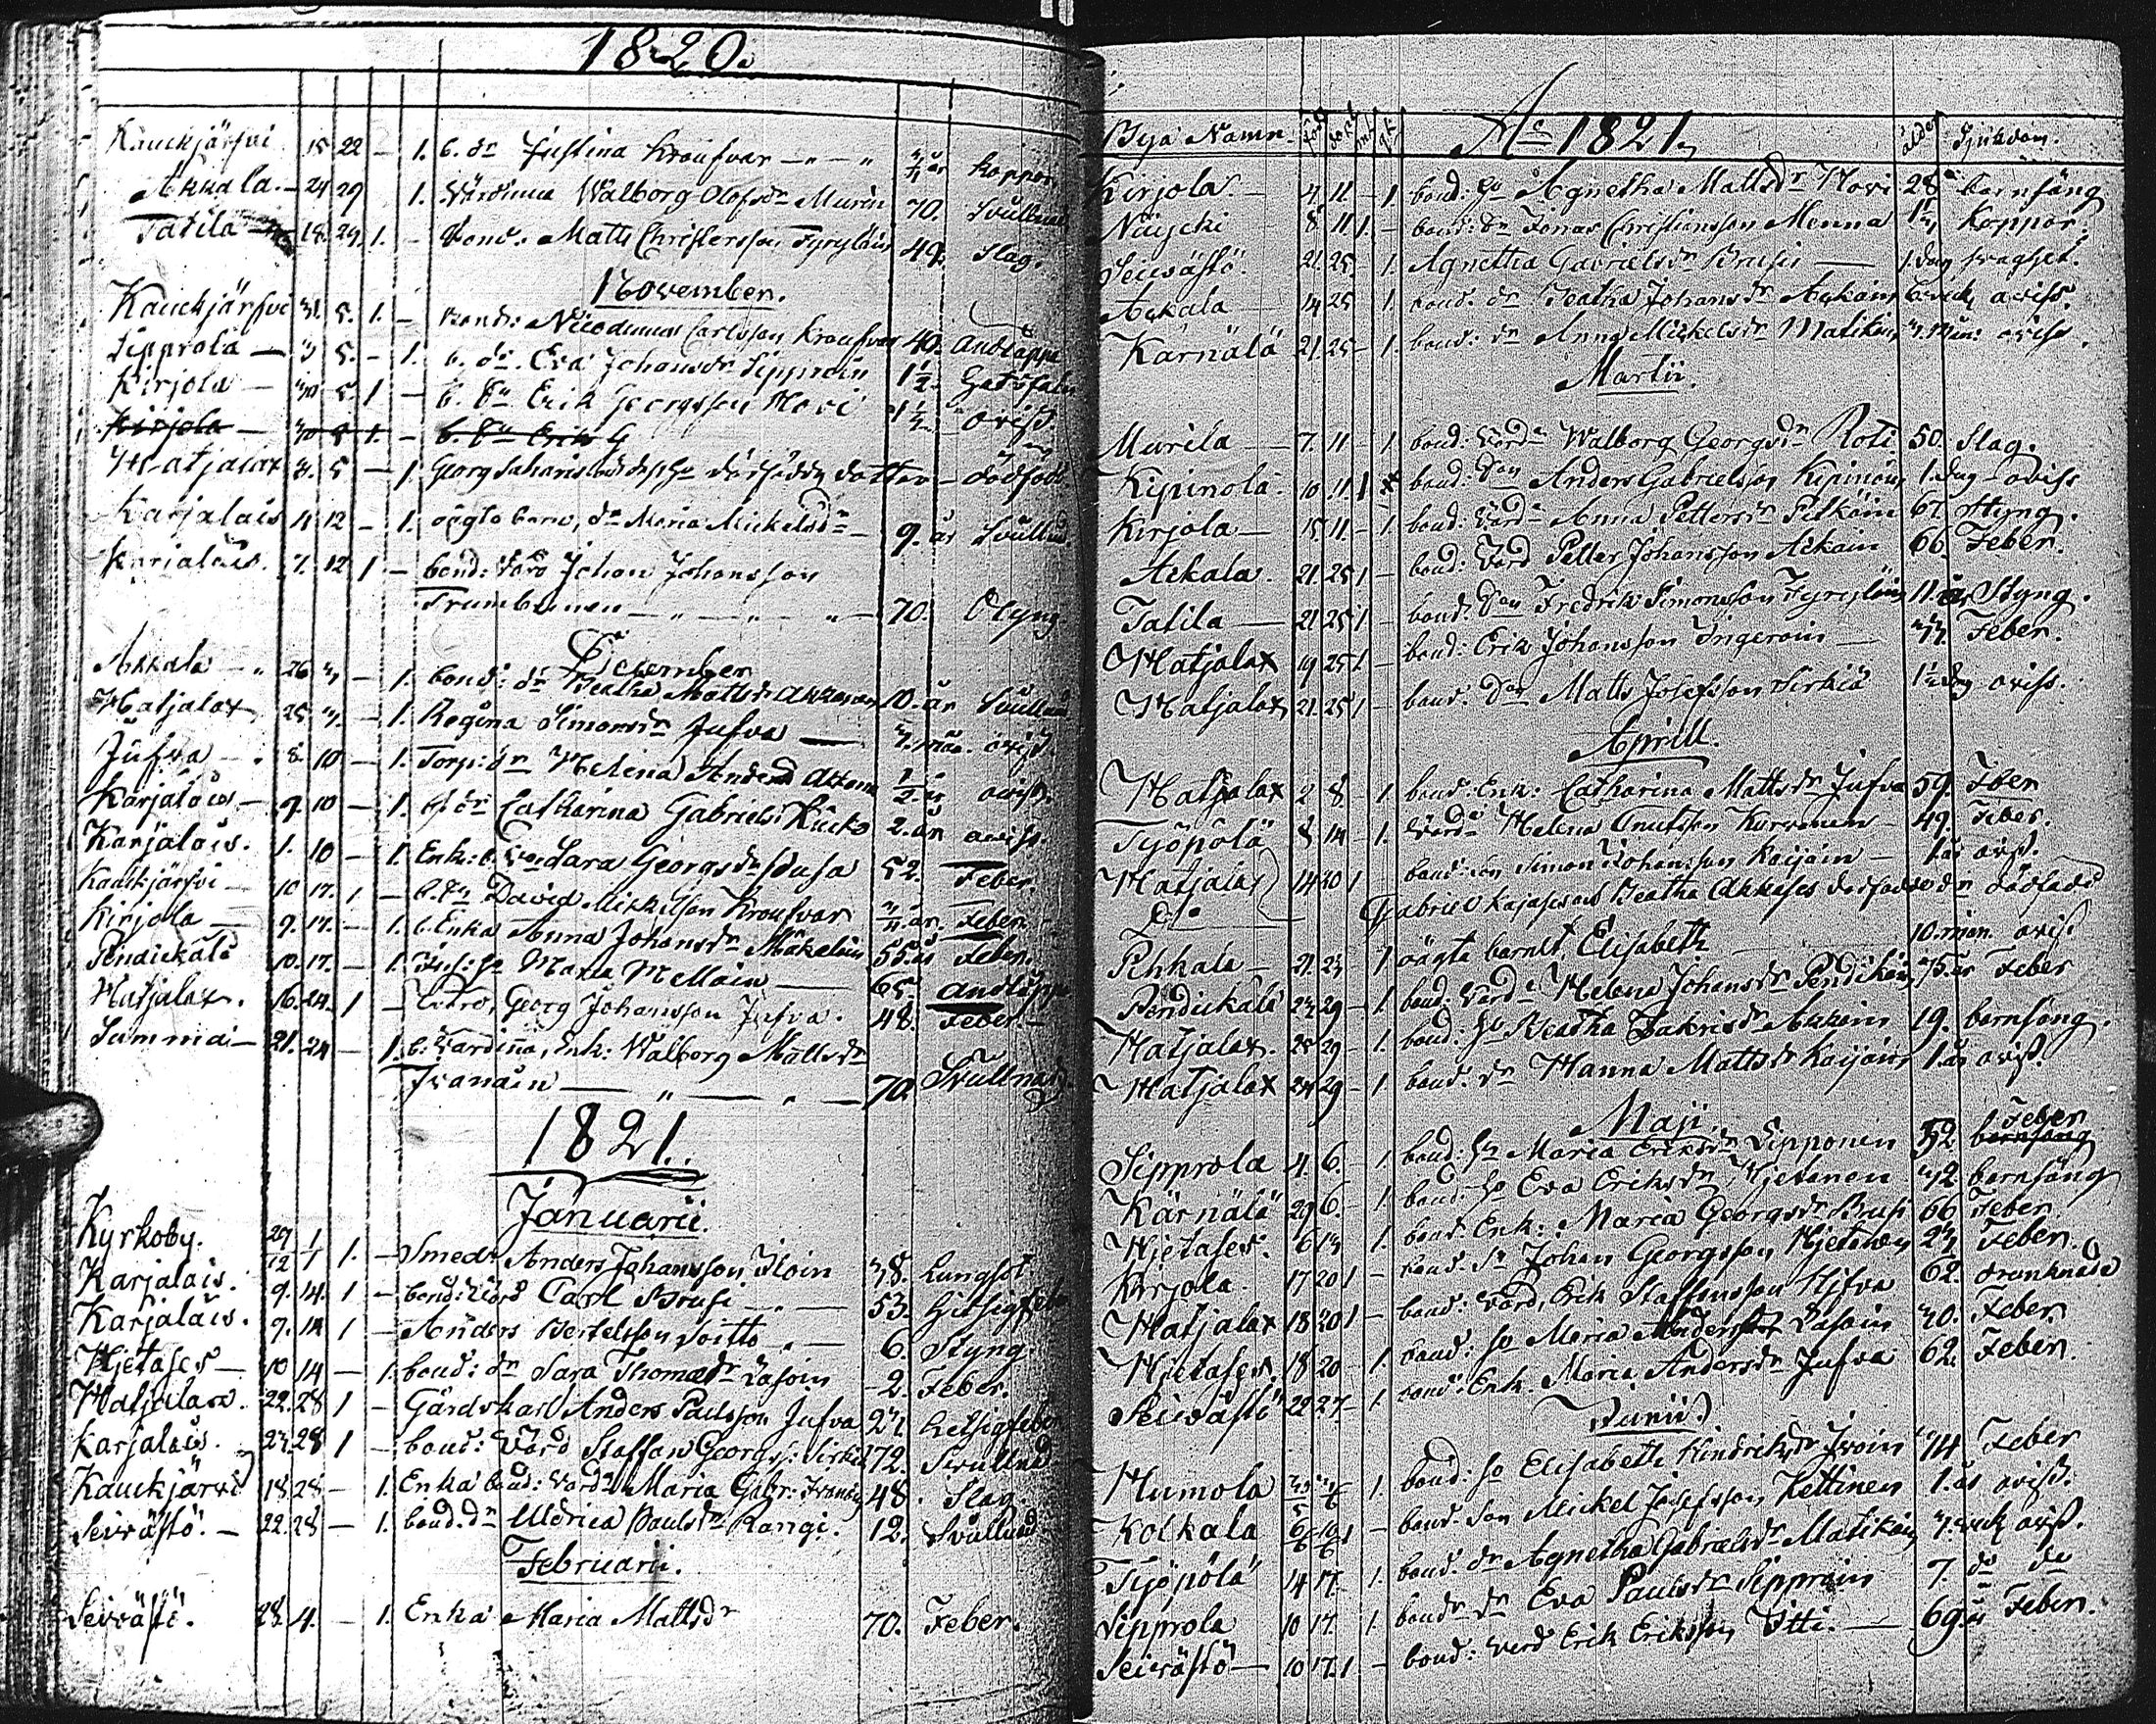 1820.
Kauckjärfvi 15 22 - 1. b. dr Justina Kroufvar - " - " år koppor
Akkala. - 24 29 1. Värdinna Walborg Olofsdr Murin 70. Svullnad
Tatila 18. 29. 1. - bond. Matts Christersson Tyrylain 49. Slag.
November.
Kauckjärfvi 31. 5. 1. - bond: Nicodemus Carlsson Kroufvar 40. Andtäppa
Sipprola - 5. - 1. b. dr. Eva Johansdr Sipproin 1 1/2.
Kirjola - 5. 1 - b. Sn Erik Georgsson Hovi 1 1/2 oviss.
Kirjola - 30 5 1. - b. Sn Erik G
Hatjalax 5 - 1 Georg dotter - dödfödd
Karjalais 4 12 - 1. oägta barn, dr Maria Mickelsdr - 9. år Svullnad.
Karjalais. 7. 12 1 - bond: Värd Johan Johansson
Trumbinen - " - " - " - 70. Styng.
December
Akkala - " 26 - 1. bond: dr Beatha Mattsdr Akkanen 10. år Svullnad
Hatjalax 25 - 1. Regina Simonsdr Jufva — mån. oviss.
Jufva - . 8. 10 - 1. Torp: dr Helena Andersd 1/2. år oviss.
Karjalais - 9. 10 - 1. b. dr Catharina Gabrielsd 2. år oviss.
Karjalais. 1. 10 - 1. Enk: b. Sara Georgsdr Susa 52. Feber.
Kauckjärfvi - 10 17. 1 - b. Sn David Mickelsson Kroufvar år. Feber.
Kirjola - 9. 17. - 1. b. Enka Anna Johansdr Mäkeläin 55. år Feber.
Pendickälä 10. 17. - 1. hu Maria Melloin — 65. andtäppa
Hatjalax. 16. 24. 1 - Georg Johansson Jufva. 48. Feber. -
Summa - 21. 24 - 1. b: Värdinna, Enk: Walborg Mattsdr
Ivanain — " — " — 70. Svullnad.
1821.
Januarii.
Kyrkoby. 29/12 1/1 1. - Smed: Anders Johansson Iloin 38. Lungsot.
Karjalais. 9. 14. 1 - bond: Värd Carl Brusi - " — 53. hitsigfeber
Karjalais. 9. 14 1 - Anders Bertelsson Soitto - 6. Styng.
Hjetases - 10 14 - 1. bond: dr Sara Thomædr Lasoin - 2. Feber.
Hatjalax. 22. 28 1 - Gårdskarl Anders Paulsson Jufva 27 hetsigfeber
Karjalais. 23. 28 1 - bond: Värd Staffan Georgs: Sirkiä 72. Svullnad
Kauckjärvi 18 28 - 1. Enka bond: Värda Maria Gabr: Ivanain 48. Slag.
Seivästö. - 22. 28 - 1. bond. dr Uldrica Paulsdr Rangi. 12. Svullnad
Februarii.
Seivästö. 28. 4. - 1. Enka Maria Mattsdr 70. Feber.
Bya Namn. död begr mk qk Ao 1821. ålder Sjukdom.
Kirjola - 4. 11 - 1 bond: hu Agnetha Mattsdr Hovi 28 barnsäng
Näycki 8 11 1. - bond: Sn Jonas Christiansson Menna Koppor.
Seivästö. 21. 25 - 1. Agnetha Gabrielsdr Brusi — 1. dag svaghet.
Ackala 14 25 1. bond. dr Beatha Johansdr Ackain 6. vick oviss.
Kärnälä 21. 25 - 1. bond: dr Anna Mickelsdr Matikain mån: oviss.
Martii.
Murila - 7. 11 - 1 bond: Värda Walborg Georgsdr Roti 50. Slag.
Kipinola. 10. 11. 1 x bond: Son Anders Gabrielsson Kipinoin 1. dag oviss
Kirjola - 15. 11. - 1. bond: Värda Anna Pettersdr Pitkäin 67. Styng.
Ackala. 21. 25 1 - bond: Värd Petter Johansson Ackain 66. Feber.
Tatila - 21 25 1 - bond: Son Fredrik Simonsson Tyryläin 11. år Styng.
Hatjalax 19 25 1. - bond: Erik Johansson Ingeroin - 77. Feber.
Hatjalax 21. 25 1 - bond: Son Matts Josefsson Sirkiä dag oviss.
Aprill.
Hatjalax 2 8. 1 bond: Enk: Catharina Mattsdr Jufva 59. Feber
Työpölä 8 14 - 1. Värda Helena Cnutsdr Kurronen - 49. Feber.
Hatjalax 14 20 1 bond: Son Simon Johansson Kaijain - 1. år oviss.
Do - Gabriel Kajases och Beatha Akkases dödfödde dr dödfödd
Pihkala - 21. 23 1 oägta barnet, Elisabeth — 10. mån. oviss
Pendickälä 23 29 - 1. bond: Värda Helena Johansdr Pendikäin 75. år Feber
Hatjalax. 25 29 - 1. bond: hu Beatha Zakrisdr Akkain 19. barnsäng.
Hatjalax 24 29 - 1. bond: dr Hanna Mattsdr Kaijain 1. år oviss.
Maji.
Sipprola 4. 6. - 1. bond: hu Maria Ericsdr Sipponen 32 barnsäng Feber
Kärnälä 29 6. - 1. bond: hu Eva Eriksdr Hjetanen 42 barnsäng
Hjetases. 6 13 1. bond: Enk: Maria Georgsdr Brusi 66 Feber.
Kirjola. 17 20 1 - bond. Sn Johan Georgsson Hjetanen 23 Feber.
Hatjalax 18 20 1 - bond: Värd, Erik Staffansson Hifva 62. drunknade
Hjetases. 18 20 - 1. bond: hu Maria Andersdr Lasoin 40. Feber.
Seivästö 22 27 - 1. bond: Enk. Maria Andersdr Jufva 62. Feber.
Junii.
Humola 1. bond: hu Elisabeth Hindriksdr Iroin 74 Feber
Kolkala 6/6 10/6 1 - bond: Son Mickel Josefsson Kettinen 1. år oviss.
Työpölä 14 17. - 1. bond: dr Agnetha Gabrielsdr Matikain 7. vick oviss.
Sipprola 10 17. 1. bond dr Eva Paulsdr Sipproin 7. do do
Seivästö - 10 17. 1 - bond: Värd Erik Eriksson Itti. — 69. år Feber.